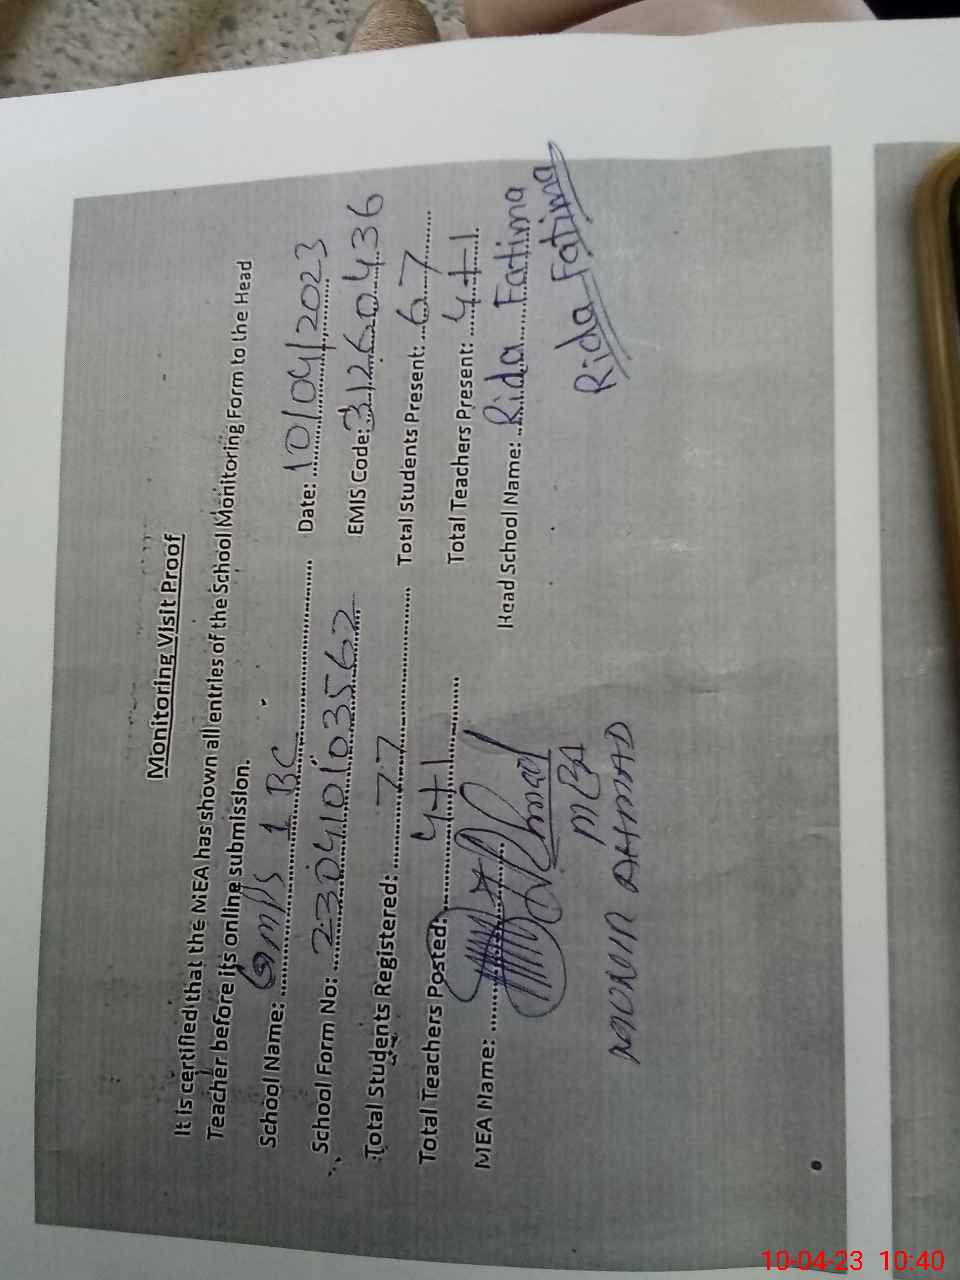 Monitoring Visit Proof
It is certified that the MEA has shown all entries of the School Monitoring Form to the Head
Teacher before its online submission.
School Name: GMPS 1 BC Date: 10/04/2023
School Form No: 230410103562 EMIS Code: 31260436
Total Students Registered: 77 Total Students Present: 67
Total Teachers Posted: 4+1 Total Teachers Present: 4+1
MEA Name: Head School Name: Rida Fatima
Rida Fatima
AHMAD
10-04-23 10:40